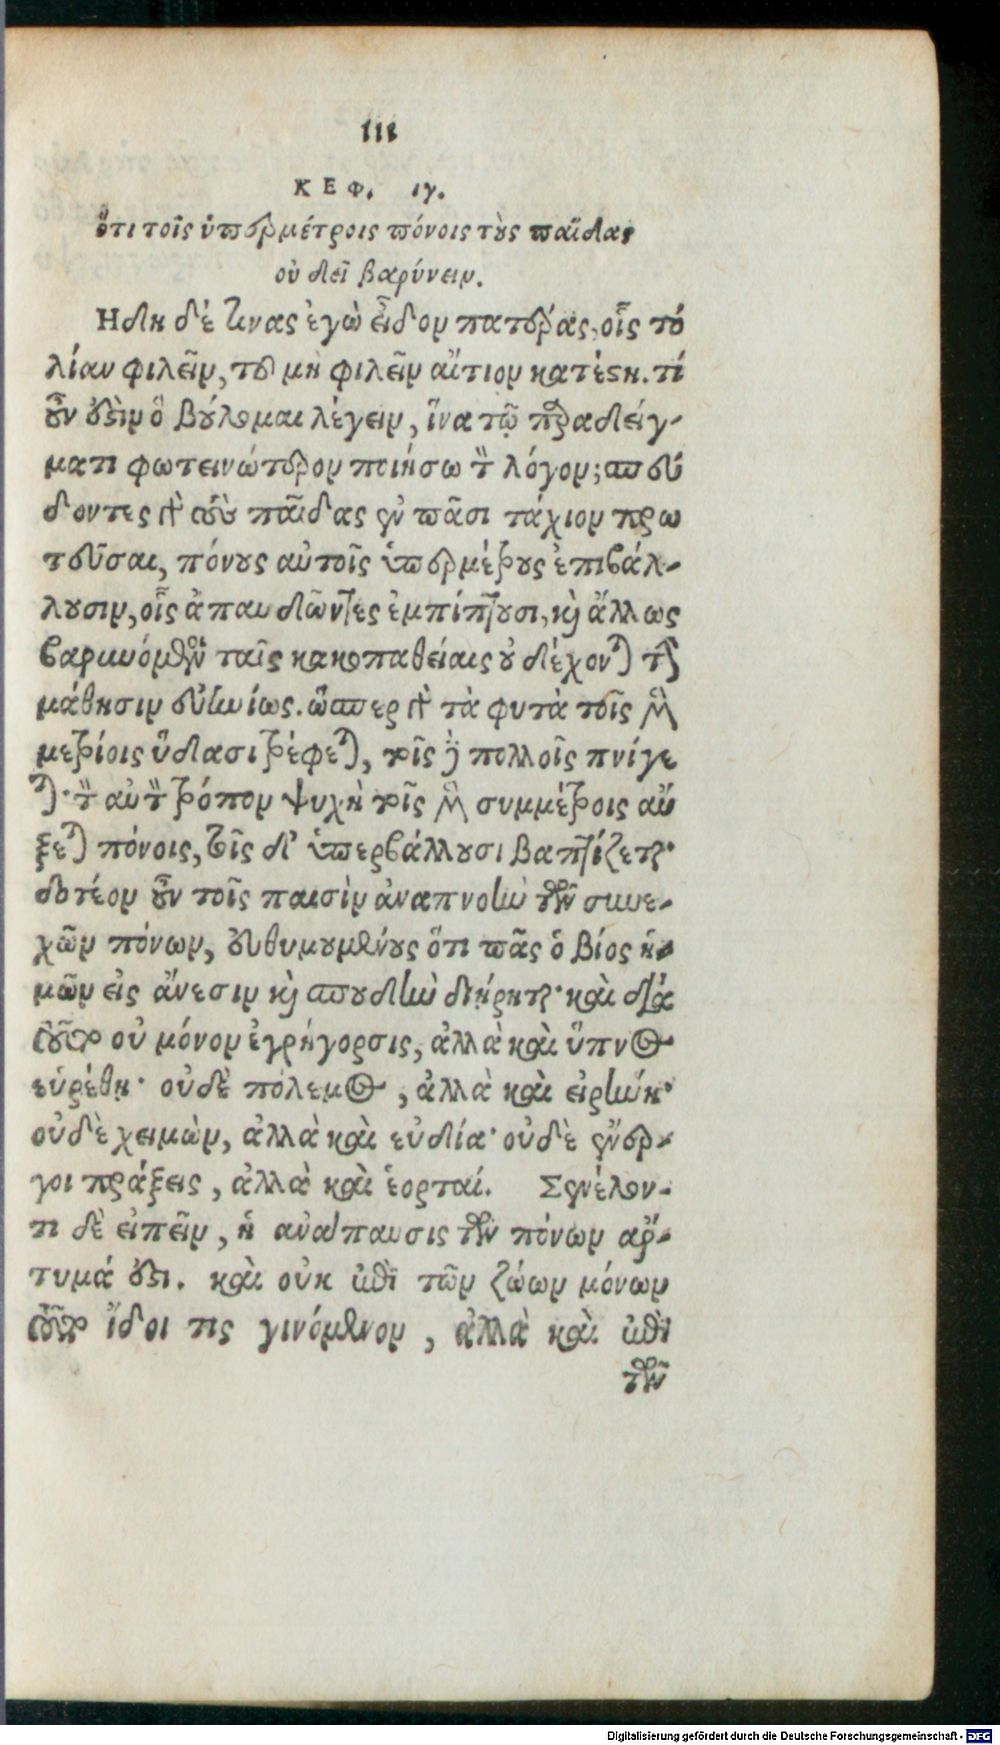 111
ΚΕΦ. ιγ.
ὅτι τοῖς ὑπερμέτροις πόνοις τοὺς παῖδας
οὐ δεῖ βαρύνειν.
Ηδη δέ τινας ἐγὼ εἶδον πατέρας, οἷς τό
λίαν φιλεῖν, τοῦ μὴ φιλεῖν αἴτιον κατέστη. τί
οὖν ἐστὶν ὃ βούλομαι λέγειν, ἵνα τῷ παραδείγ-
ματι φωτεινώτερον ποιήσω τὸν λόγον; σπεύ
δοντες γὰρ τοὺς παῖδας ἐν πᾶσι τάχιον πρω
τεῦσαι, πόνους αὐτοῖς ὑπερμέτρους ἐπιβάλ-
λουσιν, οἷς ἀπαυδῶντες ἐμπίπτουσι, καὶ ἄλλως
βαρυνόμενοι ταῖς κακοπαθείαις οὐ δέχονται τὴν
μάθησιν εὐηνίως. ὥσπερ γὰρ τὰ φυτὰ τοῖς μὲν
μετρίοις ὕδασι τρέφεται, τοῖς δὲ πολλοῖς πνίγε
ται· τὸν αὐτὸν τρόπον ψυχὴ τοῖς μὲν συμμέτροις αὔ
ξεται πόνοις, τοῖς δ’ ὑπερβάλλουσι βαπτίζεται·
δοτέον οὖν τοῖς παισὶν ἀναπνοὴν τῶν συνε-
χῶν πόνων, ἐνθυμουμένους ὅτι πᾶς ὁ βίος ἡ-
μῶν εἰς ἄνεσιν καὶ σπουδὴν διῄρηται· καὶ διὰ
τοῦτο οὐ μόνον ἐγρήγορσις, ἀλλὰ καὶ ὕπνος
εὑρέθη· οὐδὲ πόλεμος, ἀλλὰ καὶ εἰρήνη·
οὐδὲ χειμὼν, ἀλλὰ καὶ εὐδία· οὐδὲ ἔνερ-
γοι πράξεις, ἀλλὰ καὶ ἑορταί. Συνέλον-
τι δὲ εἰπεῖν, ἡ ἀνάπαυσις τῶν πόνων ἀρ-
τυμά ἐστι. καὶ οὐκ ἐπὶ τῶν ζώων μόνων
τοῦτο ἴδοι τις γινόμενον, ἀλλὰ καὶ ἐπὶ
τῶν
Digitalisierung gefördert durch die Deutsche Forschungsgemeinschaft - DFG